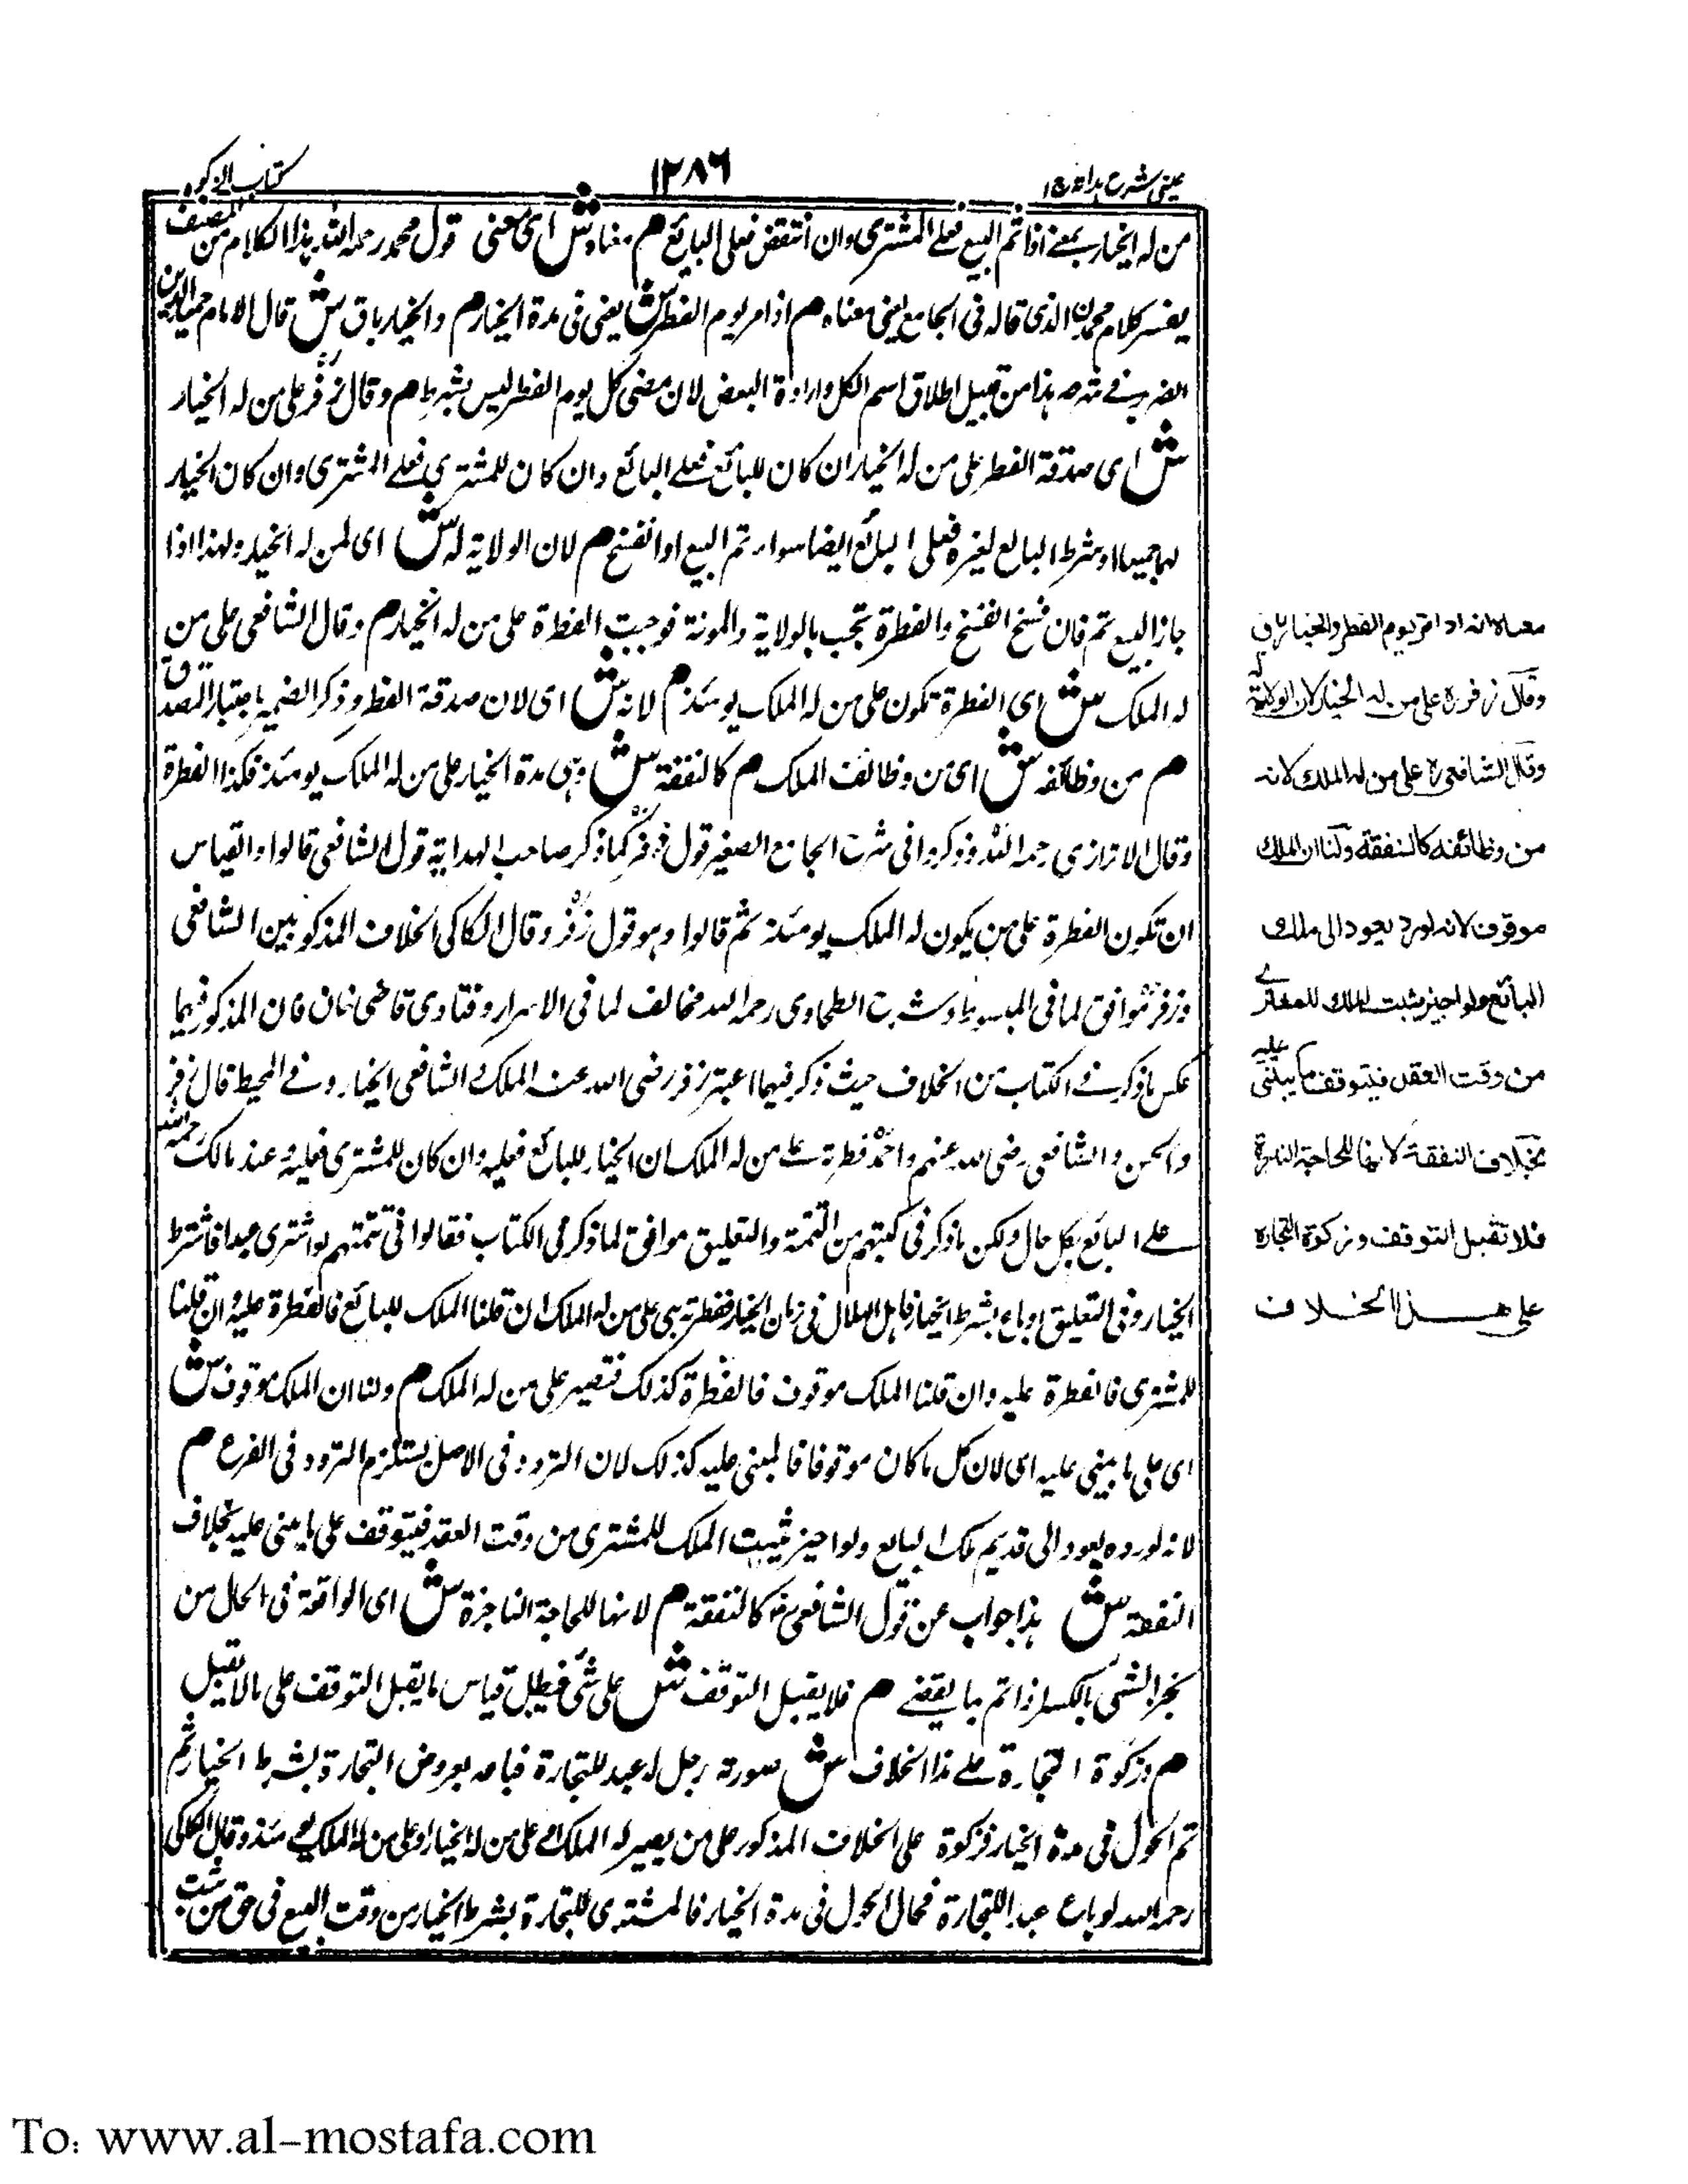 عینی شرح ہدایہ ج ۱
۱۲۸۶
کتاب الزکوۃ
من له الخيار بمعنے اذا تم البيع فعلے المشتری وان انتقض فعلی البائع م معناه ش ای معنی قول محمد رحمه الله بهذا الكلام من المصنف
يفسر كلام محمد الذی قاله فی الجامع يعنی معناه م اذا مر يوم الفطر ش يعنی فی مدة الخيار م والخيار باق ش قال الامام حميد الدين
الضرير فے شرحه هذا من قبيل اطلاق اسم الكل وارادة البعض لان مضی كل يوم الفطر ليس بشرط م وقال زفر علی من له الخيار
ش ای صدقة الفطر علی من له الخيار ان كان للبائع فعلے البائع وان كان للمشتری فعلے المشتری وان كان الخيار
لهما جميعا او شرط البائع لغيره فعلی البائع ايضا سواء تم البيع او انفسخ م لان الولاية له ش ای لمن له الخيار ولهذا اذا
جاز البيع تم فان فسخ انفسخ والفطرة تجب بالولاية والمونة فوجبت الفطرة علی من له الخيار م وقال الشافعی علی من
له الملك ش ای الفطرة تكون علی من له الملك يومئذ م لانه ش ای لان صدقة الفطر وذكر الضمير باعتبار التصدق
م من وظائفه ش ای من وظائف الملك م كالنفقة ش وهی مدة الخيار علی من له الملك يومئذ فكذا الفطرة
وقال الاترازی رحمه الله وذكروا فی شرح الجامع الصغير قول زفر كما ذكر صاحب الهداية قول الشافعی قالوا والقياس
ان تكون الفطرة علی من يكون له الملك يومئذ ثم قالوا وهو قول زفر وقال الكاكی الخلاف المذكور بين الشافعی
وزفر موافق لما فی المبسوط وشرح الطحاوی رحمه الله مخالف لما فی الاسرار وفتاوی قاضی خان فان المذكور فيهما
عكس ما ذكر فے الكتاب من الخلاف حيث ذكر فيهما اعتبر زفر رضی الله عنه الملك والشافعی الخيار وفے المحيط قال زفر
والحسن والشافعی رضی الله عنهم واحمد فطرته علے من له الملك ان الخيار للبائع فعليه وان كان للمشتری فعليه وعند مالك رحمه الله
علے البائع بكل حال ولكن ما ذكر فی كتبهم من التتمة والتعليق موافق لما ذكر فی الكتاب فقالوا فی تتمتهم لو اشتری عبدا فاشترط
الخيار وفی التعليق او باع بشرط الخيار فاهل الهلال فی زمان الخيار ففطرته هی علی من له الملك ان قلنا الملك للبائع فالفطرة عليه وان قلنا
للمشتری فالفطرة عليه وان قلنا الملك موقوف فالفطرة كذلك فتصير علی من له الملك م ولنا ان الملك موقوف ش
ای علی ما يبنی عليه ای لان كل ما كان موقوفا فالمبنی عليه كذلك لان التردد فی الاصل يستلزم التردد فی الفرع م
لانه لو رده يعود الی قديم ملك البائع ولو اجيز يثبت الملك للمشتری من وقت العقد فيتوقف علی ما يبنی عليه بخلاف
النفقة ش هذا جواب عن قول الشافعی كالنفقة م لانها للحاجة الناجزة ش ای الواقعة فی الحال من
نجز الشی بالكسر اذا تم بما يقضے م فلا يقبل التوقف ش علی شی فيبطل قياس ما يقبل التوقف علی ما لا يقبل
م وزكوة التجارة علے هذا الخلاف ش صورته رجل له عبد للتجارة فباعه بعروض التجارة بشرط الخيار ثم
تم الحول فی مدة الخيار فزكوة علی الخلاف المذكور علی من يصير له الملك ام علی من له الخيار او علی من له الملك يومئذ وقال الكاكی
رحمه الله لو باع عبدا للتجارة فحال الحول فی مدة الخيار فالمشتری للتجارة بشرط الخيار من وقت البيع فی حق من يثبت
معناه انه اذا مر يوم الفطر والخيار باق
وقال زفر ره علی من له الخيار لان الولاية له
وقال الشافعی ره علی من له الملك لانه
من وظائفه كالنفقة ولنا ان الملك
موقوف لانه لو رد يعود الی ملك
البائع ولو اجيز يثبت الملك للمشتری
من وقت العقد فيتوقف ما يبتنی عليه
بخلاف النفقة لانها للحاجة الناجزة
فلا تقبل التوقف وزكوة التجارة
علی هذا الخلاف
To: www.al-mostafa.com